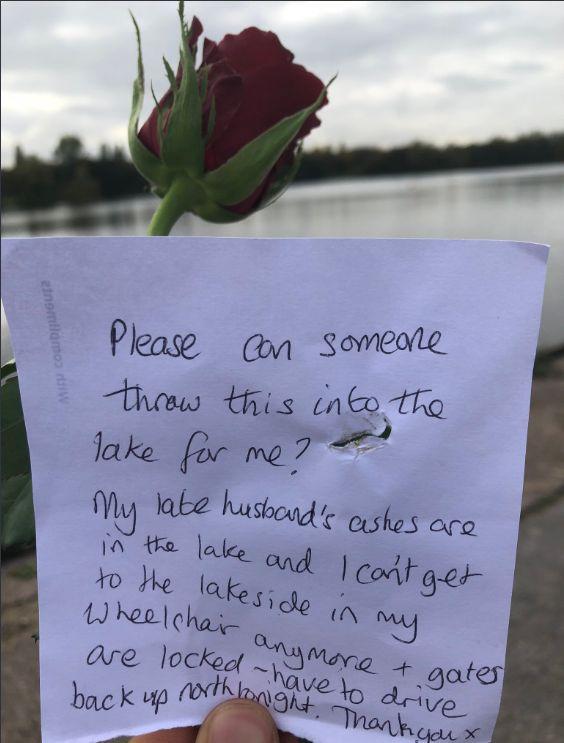 With compliments
Please can someone
throw this into the
lake for me?
My late husband's ashes are
in the lake and I can't get
to the lakeside in my
wheelchair anymore + gates
are locked - have to drive
back up north tonight. Thank you x